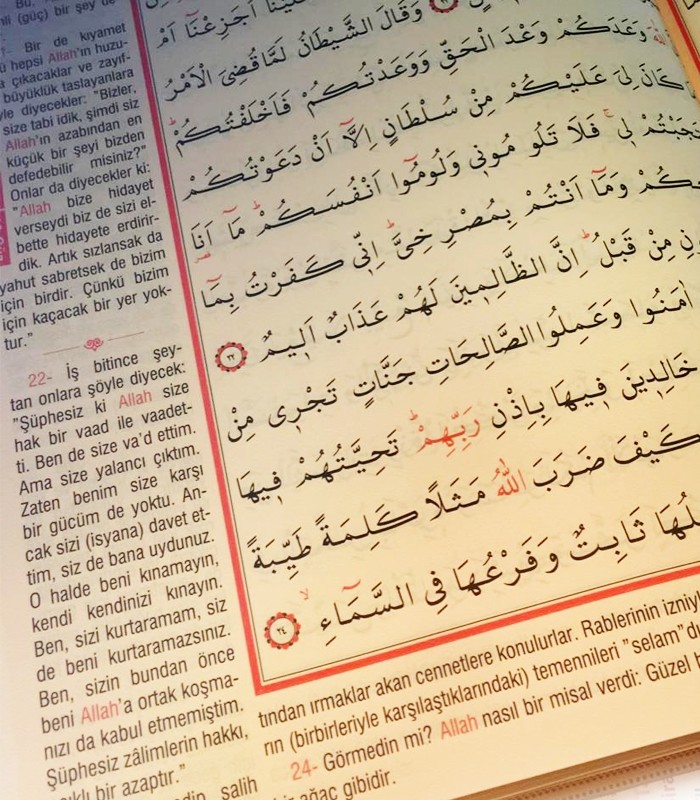 Bir de kıyamet
hepsi Allah'ın huzu-
çıkacaklar ve zayıf-
büyüklük taslayanlara
diyecekler: "Bizler,
size tabi idik, şimdi siz
Allah'ın azabından en
küçük bir şeyi bizden
defedebilir misiniz?"
Onlar da diyecekler ki:
"Allah bize hidayet
verseydi biz de sizi el-
bette hidayete erdirir-
dik. Artık sızlansak da
yahut sabretsek de bizim
için birdir. Çünkü bizim
için kaçacak bir yer yok-
tur."
22- İş bitince şey-
tan onlara şöyle diyecek:
"Şüphesiz ki Allah size
hak bir vaad ile vaadet-
ti. Ben de size va'd ettim.
Ama size yalancı çıktım.
Zaten benim size karşı
bir gücüm de yoktu. An-
cak sizi (isyana) davet et-
tim, siz de bana uydunuz.
O halde beni kınamayın,
kendi kendinizi kınayın.
Ben, sizi kurtaramam, siz
de beni kurtaramazsınız.
Ben, sizin bundan önce
beni Allah'a ortak koşma-
nızı da kabul etmemiştim.
Şüphesiz zâlimlerin hakkı,
bir azaptır."
salih
اَجَزِعْنَٓا اَمْ
وَقَالَ الشَّيْطَانُ لَمَّا قُضِيَ الْاَمْرُ
وَعَدَكُمْ وَعْدَ الْحَقِّ وَوَعَدْتُكُمْ فَاَخْلَفْتُكُمْ
كَانَ لِيَ عَلَيْكُمْ مِنْ سُلْطَانٍ اِلَّٓا اَنْ دَعَوْتُكُمْ
لِي فَلَا تَلُومُونِي وَلُومُٓوا اَنْفُسَكُمْ مَٓا اَنَا
وَمَٓا اَنْتُمْ بِمُصْرِخِيَّ اِنِّي كَفَرْتُ بِمَٓا
مِنْ قَبْلُ اِنَّ الظَّالِمِينَ لَهُمْ عَذَابٌ اَلِيمٌ ٢٢
اٰمَنُوا وَعَمِلُوا الصَّالِحَاتِ جَنَّاتٍ تَجْرِي مِنْ
خَالِدِينَ فِيهَا بِاِذْنِ رَبِّهِمْ تَحِيَّتُهُمْ فِيهَا
كَيْفَ ضَرَبَ اللّٰهُ مَثَلًا كَلِمَةً طَيِّبَةً
ثَابِتٌ وَفَرْعُهَا فِي السَّمَٓاءِ ٢٤
tından ırmaklar akan cennetlere konulurlar. Rablerinin izniyl
rın (birbirleriyle karşılaştıklarındaki) temennileri "selam"
24- Görmedin mi? Allah nasıl bir misal verdi: Güzel
ağaç gibidir.